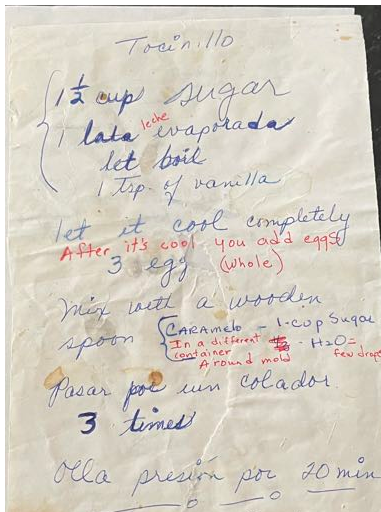 Tocinillo
1 1/2 cup sugar
1 lata leche evaporada
let boil
1 Tsp. of vanilla
let it cool completely
After it's cool you add eggs
3 egg (whole)
Mix with a wooden
spoon { CARAMelo - 1-cup Sugar
In a different - H2O=
container few drops
Around mold
Pasar por un colador.
3 times
Olla presión por 20 min